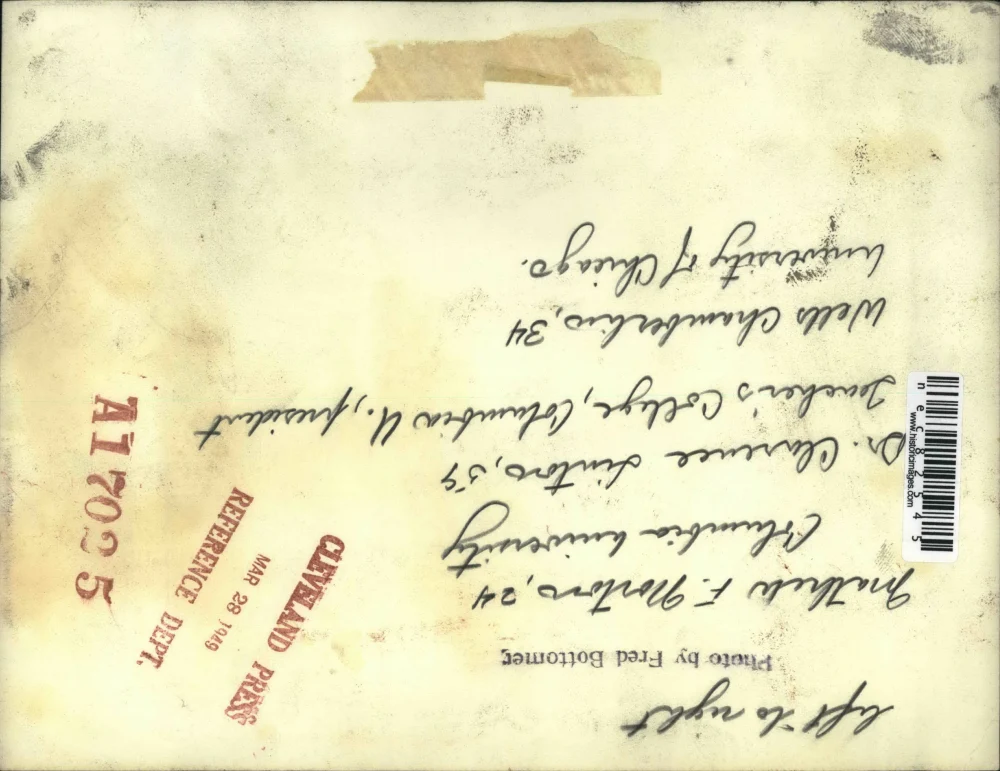 left to right
Photo by Fred Bottomer
Mathew F. Norton, 24
Columbia University
Dr. Clarence Linton, 59
Teacher's College, Columbia U., president
Wells Chamberlin, 34
University of Chicago.
CLEVELAND PRESS
MAR 28 1949
REFERENCE DEPT.
A17025
www.historicimages.com
nec82545